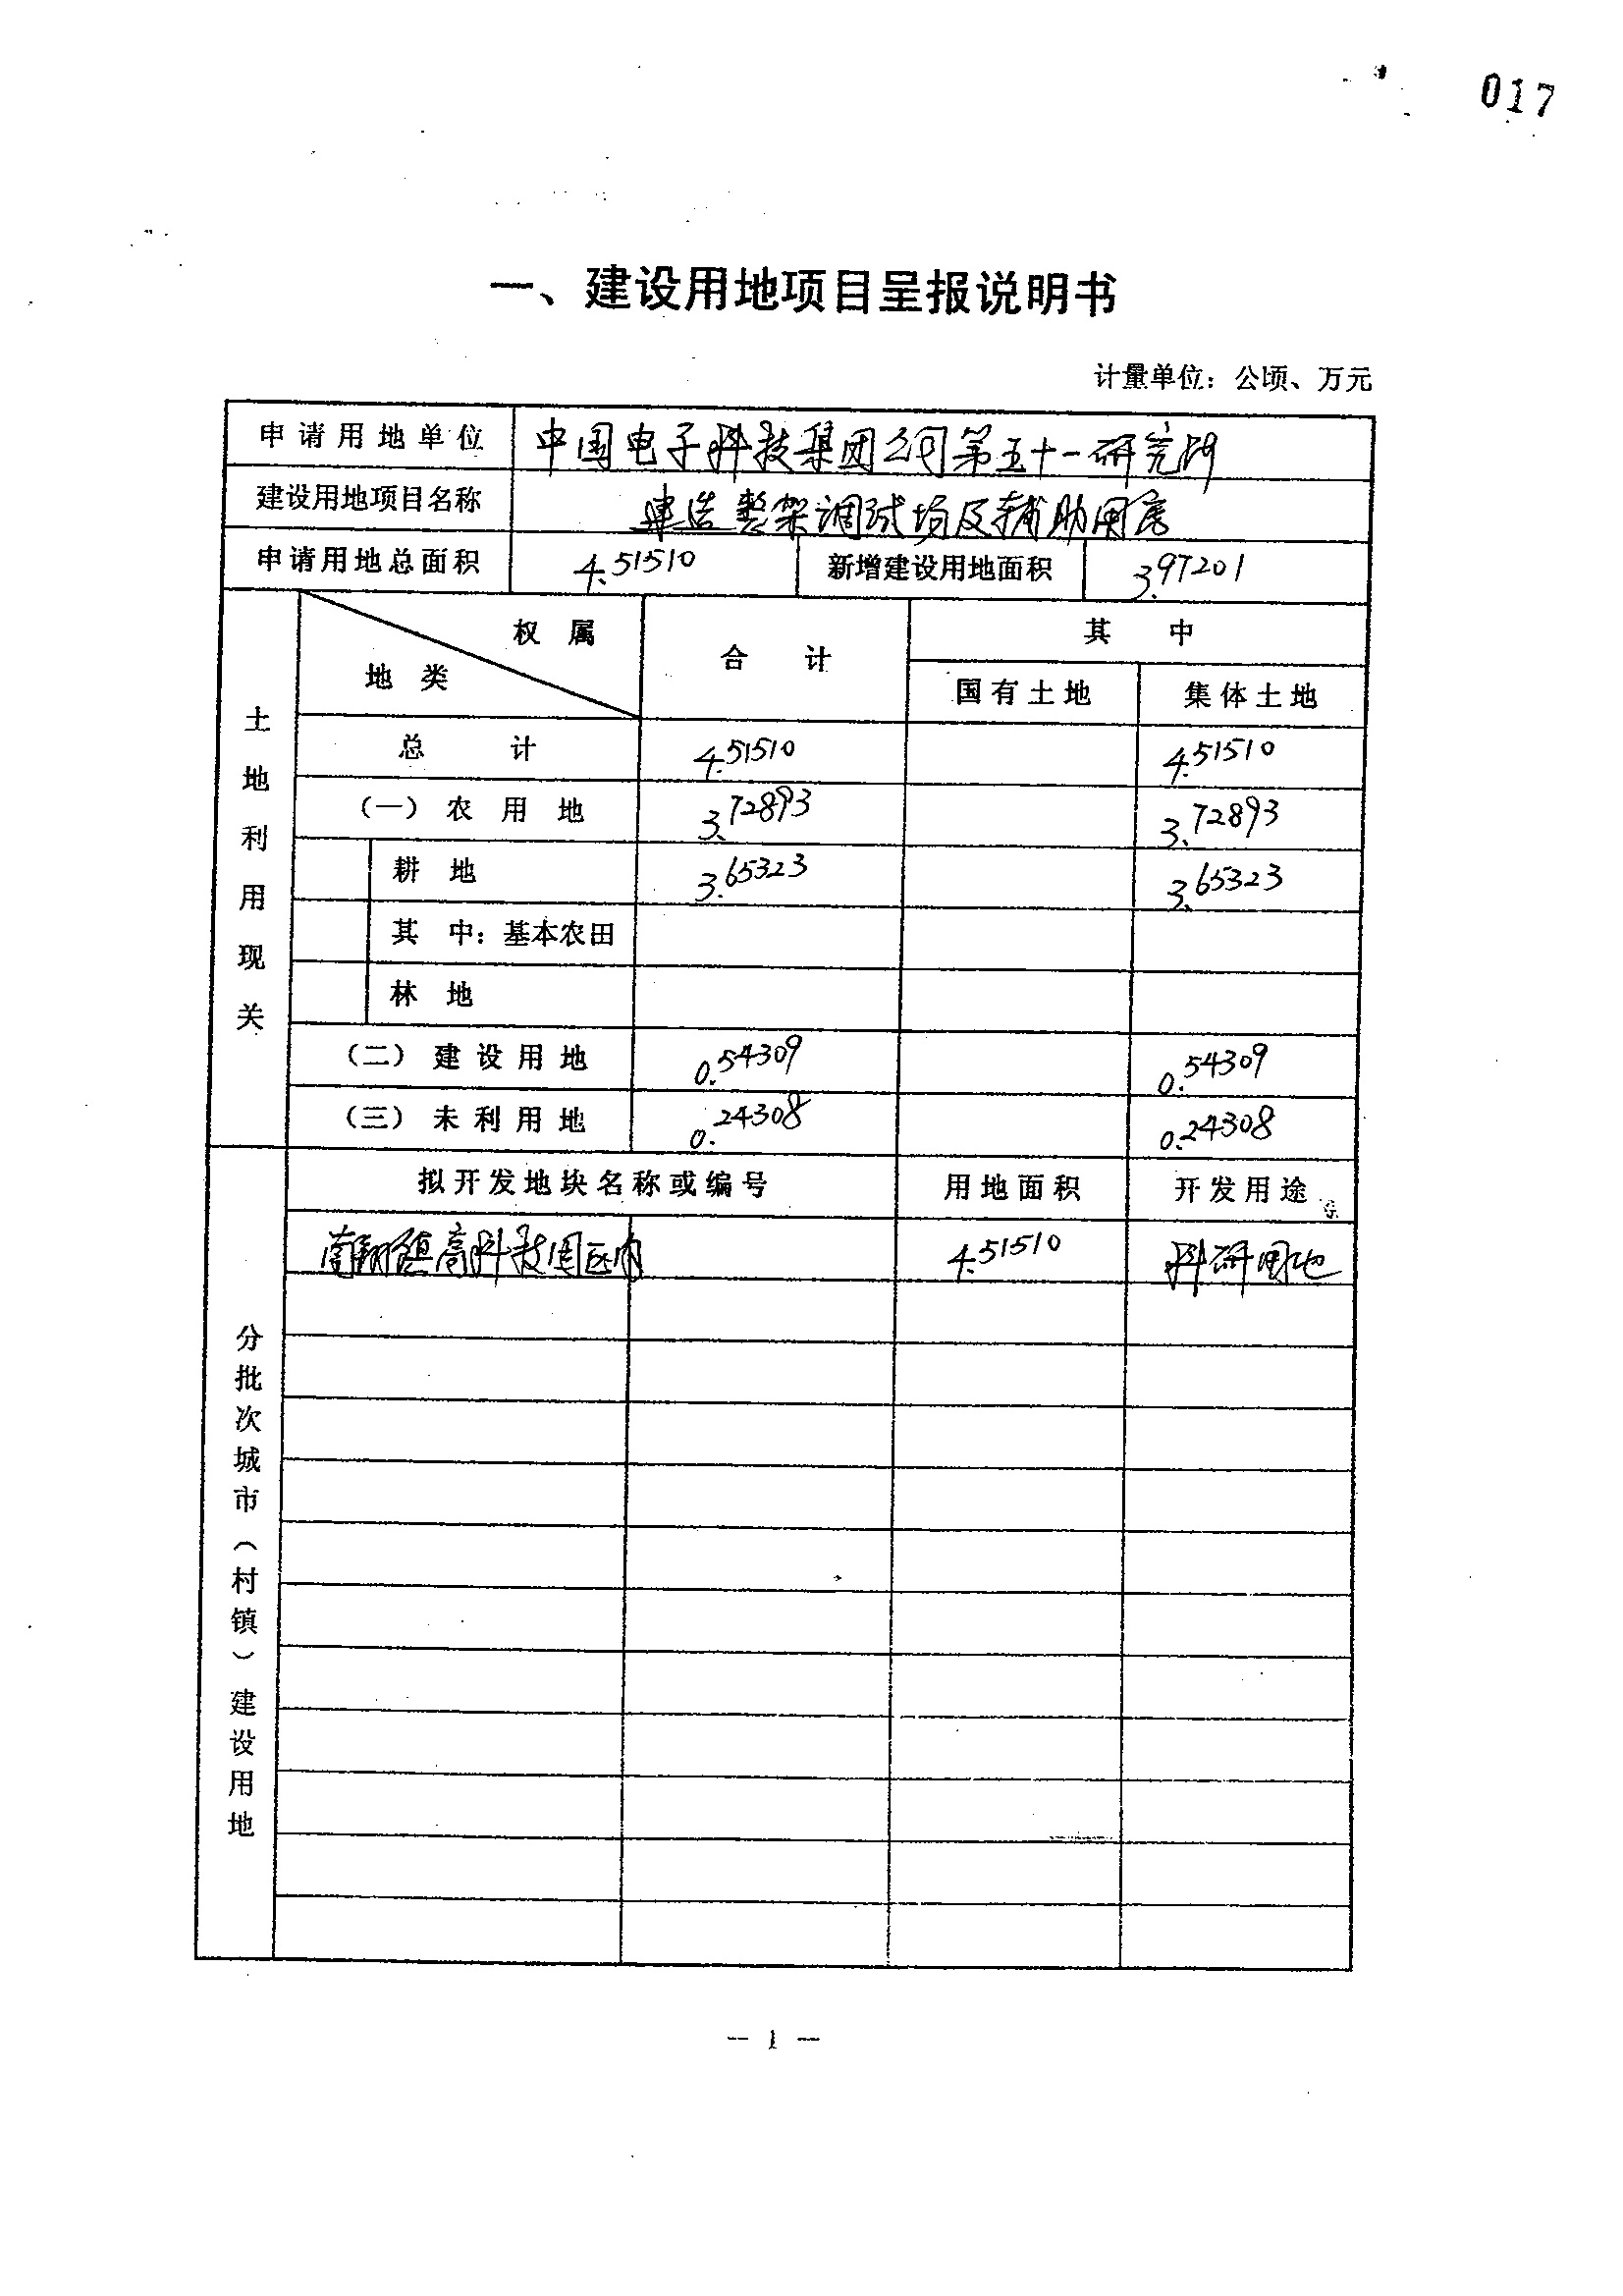 017
一、建设用地项目呈报说明书
计量单位：公顷、万元
申请用地单位 中国电子科技集团公司第五十一研究所
建设用地项目名称 建造整架调试场及辅助用房
申请用地总面积 4.51510 新增建设用地面积 3.97201
土地利用现关
权属 地类 合计 其中
国有土地 集体土地
总计 4.51510 4.51510
（一）农用地 3.72893 3.72893
耕地 3.65323 3.65323
其中：基本农田
林地
（二）建设用地 0.54309 0.54309
（三）未利用地 0.24308 0.24308
分批次城市（村镇）建设用地
拟开发地块名称或编号 用地面积 开发用途
南翔镇高科技园区内 4.51510 科研用地
— 1 —